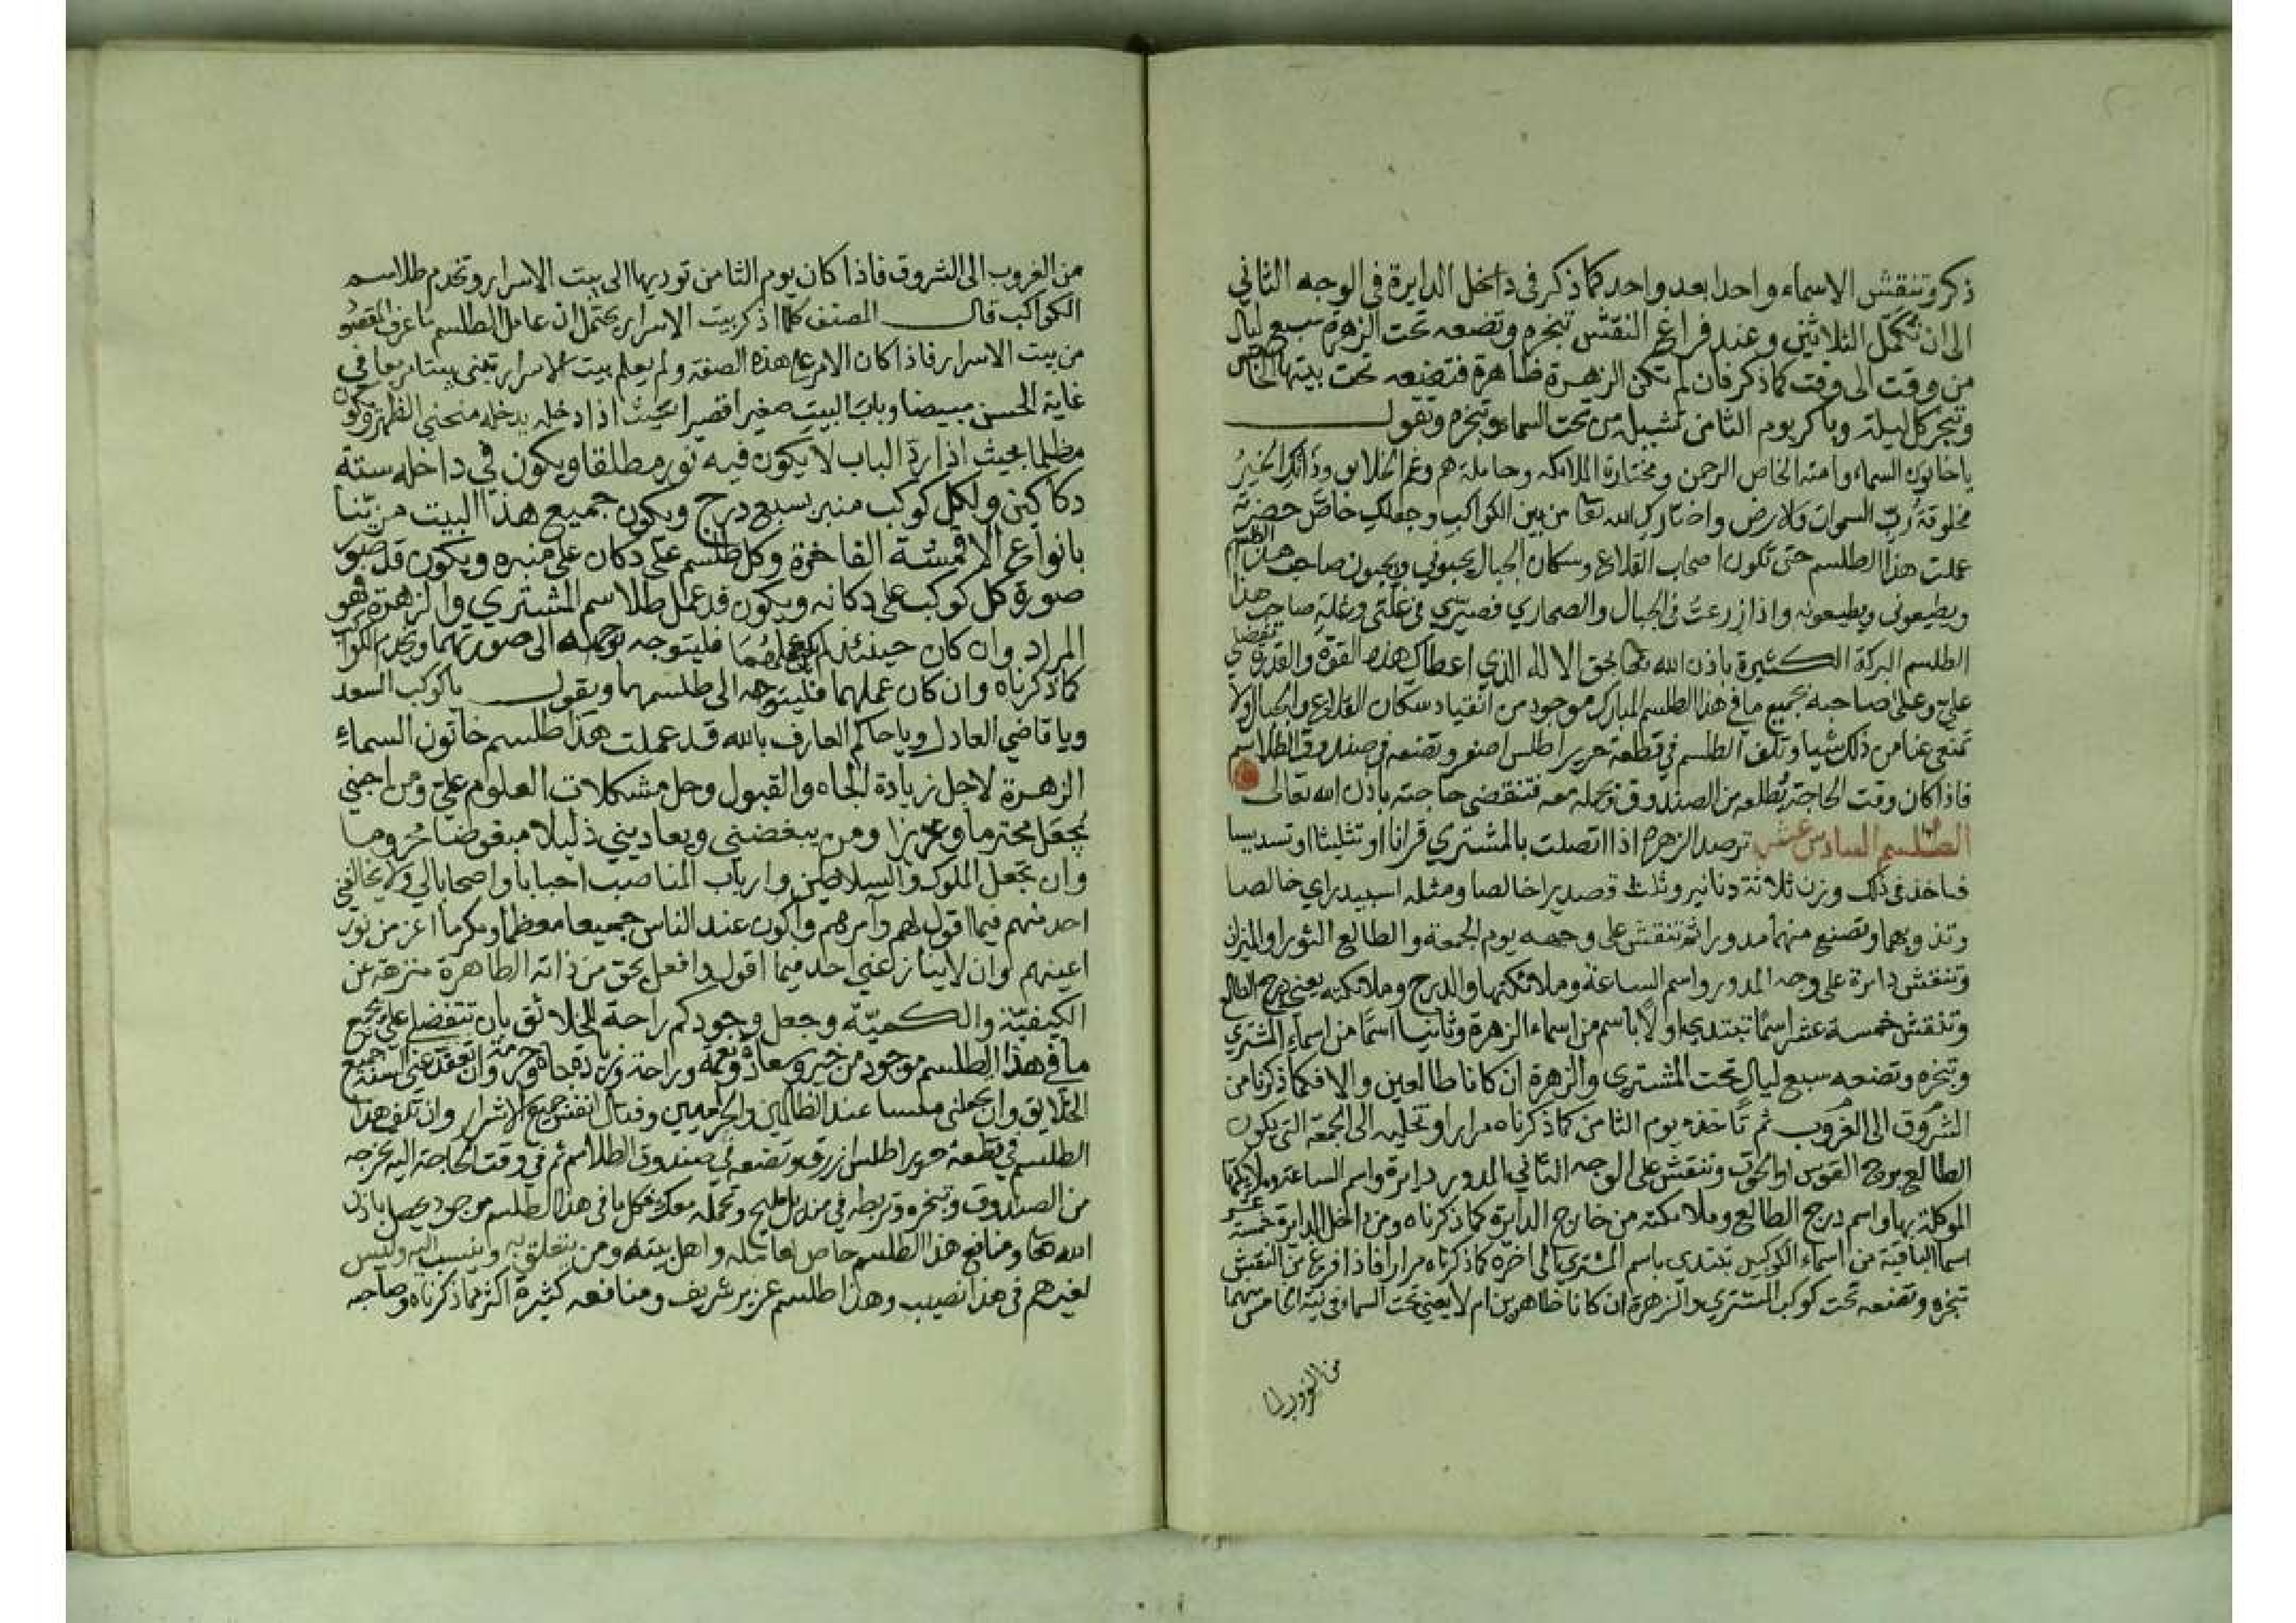 ذكر وتنقش الاسماء واحدا بعد واحد كما ذكر فى داخل الدايرة فى الوجه الثانى
الى ان تكمل الثلاثين وعند فراغ النقش تبخره وتضعه تحت الزهرة سبع ليال
من وقت الى وقت كما ذكر فان لم تكن الزهرة ظاهرة فتضعه تحت بيتها الخاص
وتبخر كل ليلة وباكر يوم الثامن تشيله من تحت السماء وتبخره وتقول
ياخاتون السماء وامته الخاص الرحمن ومختارة الملائكه وحاملة هم وغم الخلايق وذاتك الخير
مخلوقة رب السموات والارض واختارك الله تعا من بين الكواكب وجعلك خاص حضرته
عملت هذا الطلسم حتى تكون اصحاب القلاع وسكان الجبال يحبونى ويحبون صاحب هذا الطلسم
ويطيعونى ويطيعونه واذا زرعت فى الجبال والصحارى فصيرى فى غلتى وغلة صاحب هذا
الطلسم البركة الكثيرة باذن الله تعا بحق الاله الذى اعطاك هذه القوة والقدرة تفضلى
على وعلى صاحبه بجميع ما فى هذا الطلسم المبارك موجود من انقياد سكان القلاع والجبال ولا
تمنعى عنا من ذلك شيا وتلف الطلسم فى قطعة حرير اطلس اصفر وتضعه فى صندوق الطلاسم
فاذا كان وقت الحاجة يطلعه من الصندوق ويحمله معه فتنقضى حاجته باذن الله تعالى
الطلسم السادس عشر ترصد الزهرة اذا اتصلت بالمشترى قرانا او تثليثا او تسديسا
فتاخذ فى ذلك وزن ثلاثة دنانير وثلث قصديرا خالصا ومثله اسبيدراى خالصا
وتذوبهما وتصنع منهما مدورا ثم تنقش على وجهه يوم الجمعة والطالع الثور او الميزان
وتنقش دايرة على وجه المدور واسم الساعة وملائكتها والدرج وملائكته يعنى درج الطالع
وتنقش خمسة عشر اسما تبتدى اولا باسم من اسماء الزهرة وثانيا اسما من اسماء المشترى
وتبخره وتضعه سبع ليال تحت المشترى والزهرة ان كانا طالعين والا فكما ذكرنا من
الشروق الى الغروب ثم تاخذه يوم الثامن كما ذكرناه مرارا وتخليه الى الجمعة التى يكون
الطالع برج القوس او الحوت وتنقش على الوجه الثانى المدور دايرة واسم الساعة وملايكتها
الموكلة بها واسم درج الطالع وملائكته من خارج الدايرة كما ذكرناه ومن داخل الدايرة خمسة عشر
اسما الباقية من اسماء الكوكبين تبتدى باسم المشترى الى اخره كما ذكرناه مرارا فاذا فرغ من النقش
تبخره وتضعه تحت كوكب المشترى والزهرة ان كانا ظاهرين ام لا يعنى تحت السما فى بيته الخاص بهما
من الغروب الى
من الغروب الى الشروق فاذا كان يوم الثامن توديها الى بيت الاسرار وتخدم طلاسم
الكواكب قال المصنف كلما اذكر بيت الاسرار يحتمل ان عامل الطلسم ما عرف المقصود
من بيت الاسرار فاذا كان الامر على هذه الصفة ولم يعلم بيت الاسرار تبنى بيتا مربعا فى
غاية الحسن مبيضا وباب البيت صغيرا قصيرا بحيث اذا دخله يدخله منحنى الظهر ويكون
مظلما بحيث اذا رد الباب لا يكون فيه نور مطلقا ويكون فى داخله ستة
دكاكين ولكل كوكب منبر بسبع درج ويكون جميع هذا البيت مزينا
بانواع الاقمشة الفاخرة وكل طلسم على دكان على منبره ويكون قد صور
صورة كل كوكب على دكانه ويكون قد عمل طلاسم المشترى والزهرة فهو
المراد وان كان حينئذ لم يعملهما فليتوجه بوجهه الى صورتهما ويخدم الكواكب
كما ذكرناه وان كان عملهما فليتوجه الى طلسمهما ويقول ياكوكب السعد
ويا قاضى العادل ويا حاكم العارف بالله قد عملت هذا طلسم خاتون السماء
الزهرة لاجل زيادة الجاه والقبول وحل مشكلات العلوم على ومن احبنى
تجعل محترما وعزيزا ومن يبغضنى ويعادينى ذليلا مبغوضا محروما
وان تجعل الملوك والسلاطين وارباب المناصب احبابا واصحابا لى ولا يخالفنى
احد منهم فيما اقول لهم وآمرهم واكون عند الناس جميعا معظما ومكرما اعز من نور
اعينهم وان لا ينازعنى احد فيما اقول وافعل بحق من ذاته الطاهرة منزهة عن
الكيفية والكمية وجعل وجودكم راحة للخلائق بان تتفضلى على بجميع
ما فى هذا الطلسم موجود من خير وسعادة ونعمة وراحة وزيادة جاه وحرمة وان تعقد عنى السنة جميع
الخلايق وان تجعلنى عند الظالمين والحراميين وقتال انفس جميع الاشرار وان تلف هذا
الطلسم فى قطعة حرير اطلس ازرق وتضعه فى صندوق الطلاسم ثم فى وقت الحاجة اليه تخرجه
من الصندوق وتبخره وتربطه فى منديل مليح وتحمله معك فكل ما فى هذا الطلسم موجود يحصل باذن
الله تعا ومنافع هذا الطلسم خاص لعامله واهل بيته ومن يتعلق به وينسب اليه وليس
لغيرهم فى هذا نصيب وهذا طلسم عزيز شريف ومنافعه كثيرة اكثر مما ذكرناه وصاحبه